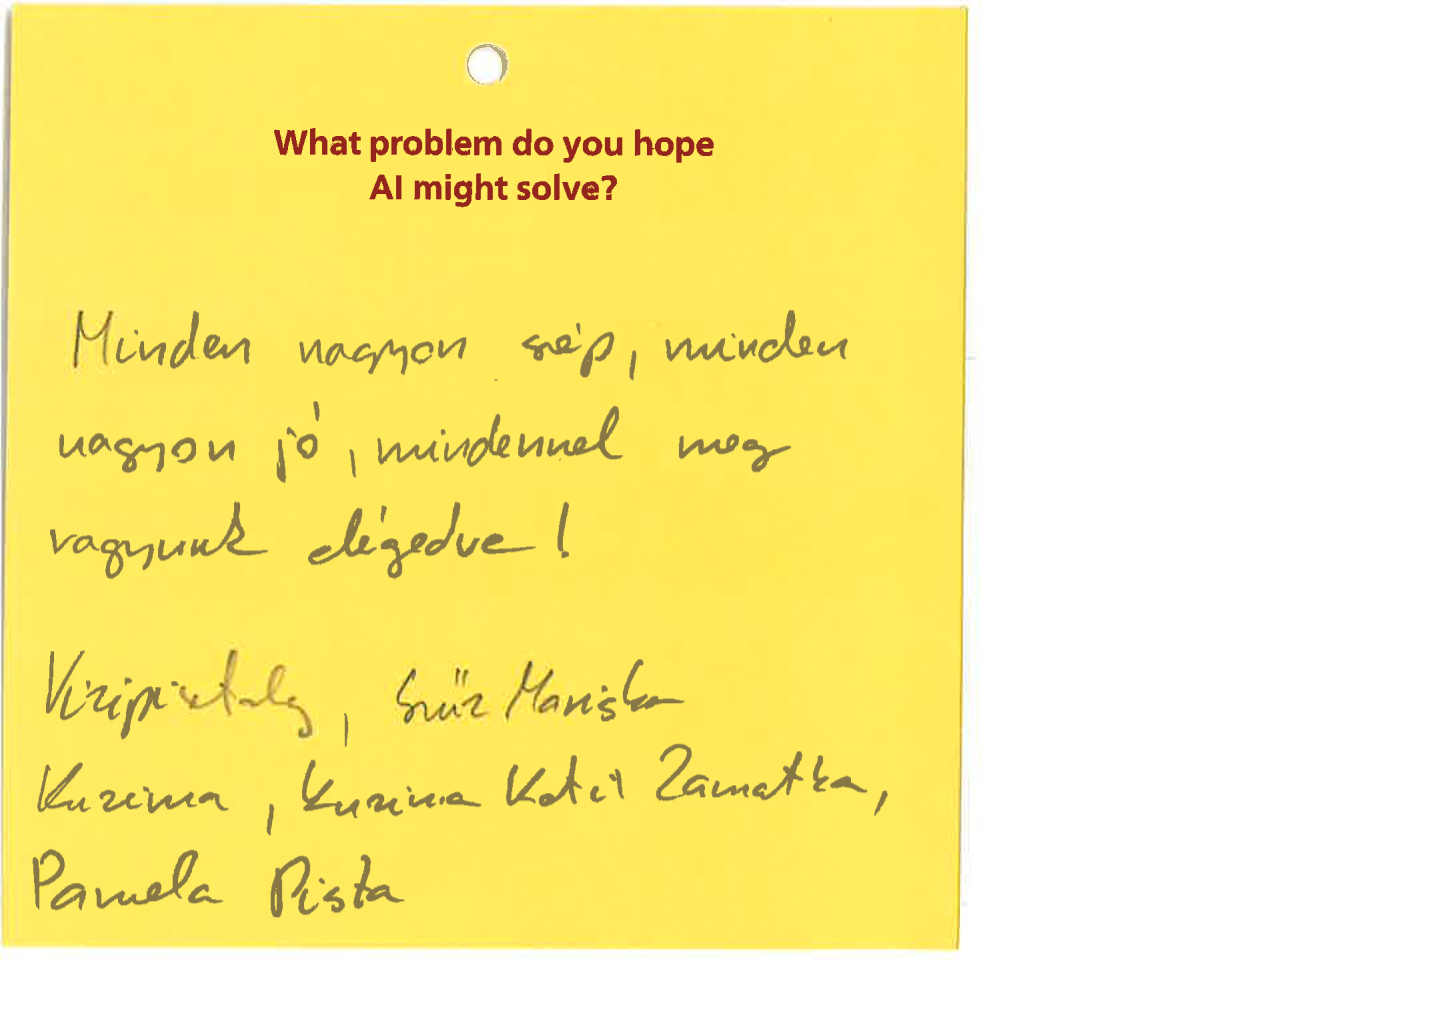 What problem do you hope
AI might solve?
Minden nagyon szép, minden
nagyon jó, mindennel meg
vagyunk elégedve!
Vizipisztoly, Szűz Mariska
Kuzima, Kuzima Zamatka,
Pamela Pista